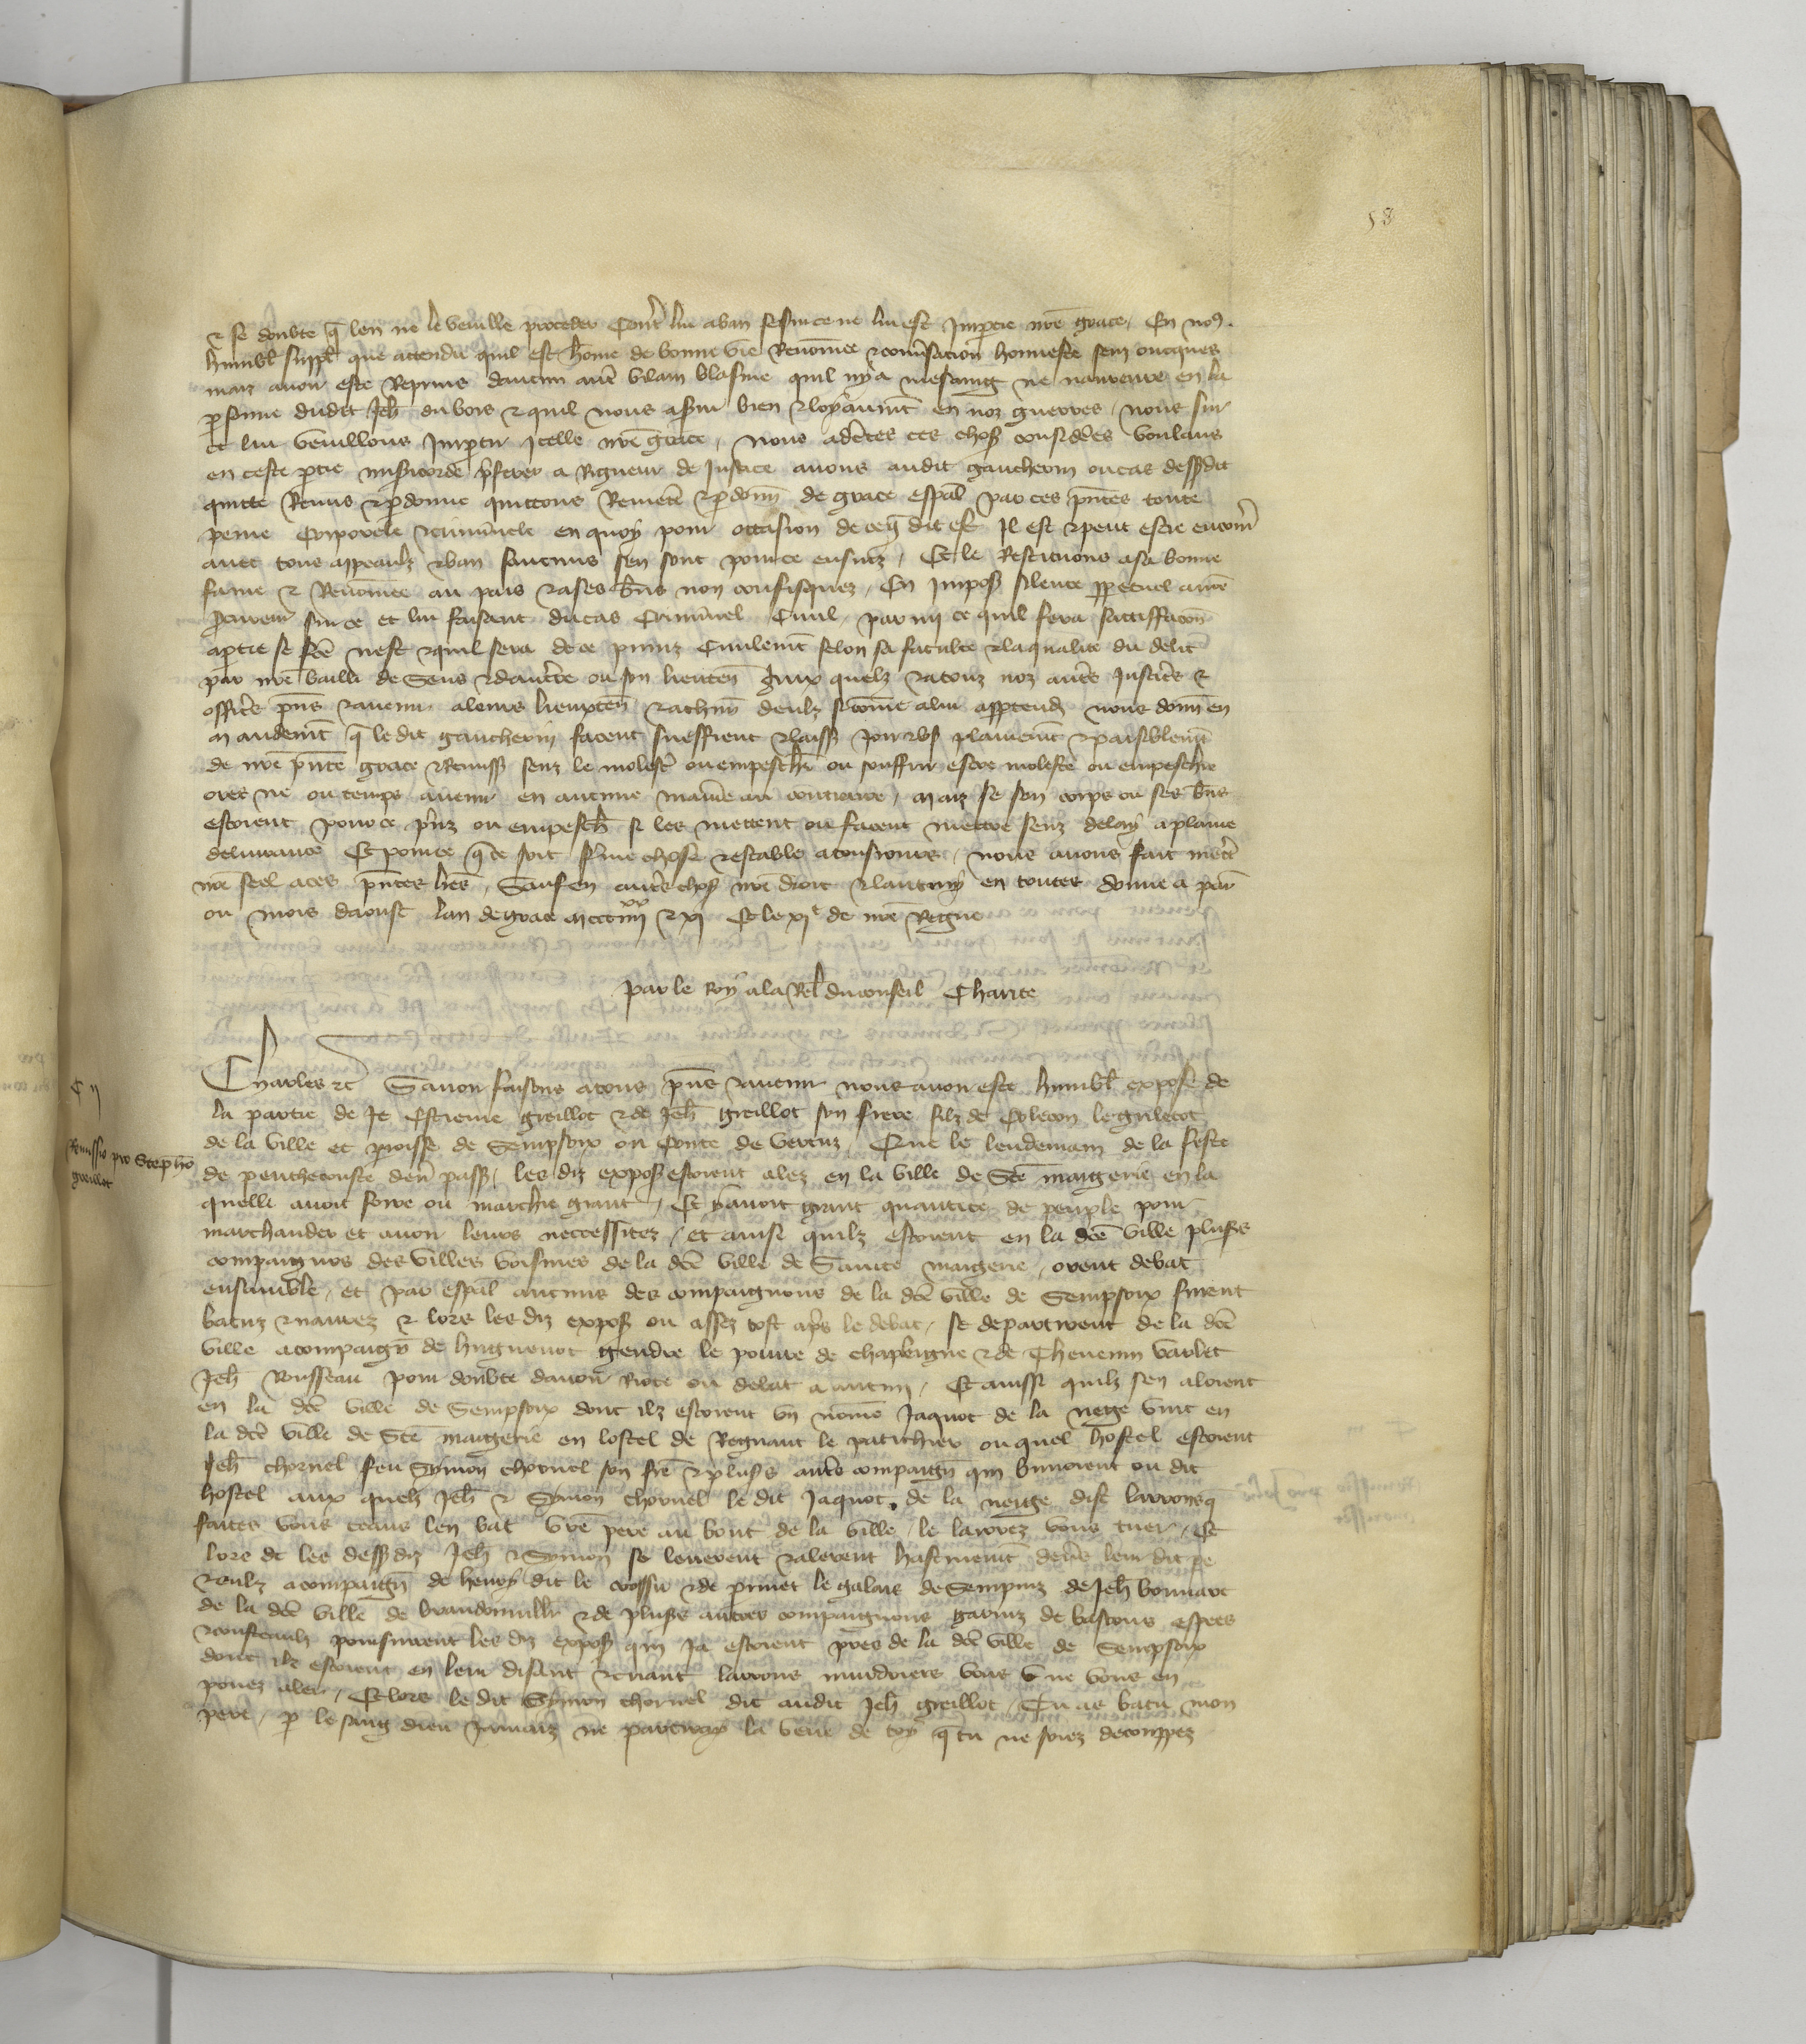 58
& se doubte q̃ len ne le veuille proceder Contr̃ lui a ban se sur ce ne lui est Impartie nr̃e grace / En nos
humbl̃ suppl̃ que attendu quil est hõme de bonne vie Renõmee & conũsacion honneste senz oncques
mais avoir este Reprins daucun autr̃ vilain blasme quil ny a mehaing ne navreure en la
ꝑsonne dudit Jeh̃ du bois & quil nous a servi bien & loyaumẽt en noz guerres / nous sur
ce lui veuillons Impartir icelle nr̃e grace / nous adcer̃tes ces chos̃ considẽes voulans
en ceste ꝑtie misericorde p̃ferer a Rigueur de Justice avons audit gaucherin ou cas dessusdit
quitte Remis & ꝑdonne quittons Remetõ & ꝑdonõ de grace esp̃al par ces p̃ntes toute
peine Corporele & criminele en quoy pour occasion de ce q̃ dit est Il est & peut estre encouru
avec tous appeaulz & ban saucuns sen sont pour ce ensuiz / Et le Restituons a sa bonne
fame & Renõmee au pais & a ses biens non confisquez / En Impos̃ silence ꝑpetuel a nr̃e
ꝓcureur sur ce et lui faisant du cas Criminel Civil / par mi ce quil fera satisffacõn
a ꝑtie se fc̃e nest & quil sera de ce puniz Civilemẽt selon sa faculte & la qualite du delit
par nr̃e bailli de Sens & dauc̃rre ou son lieuteñ Aux quelz & a touz noz autr̃es Justic̃es &
offic̃es p̃ns & avenir a leurs lieuxteñ & a chũn deulz si cõme a lui appartendr̃ nous donnõs en
mandemẽt q̃ le dit gaucherin facent sueffrent & laissẽ Joir & us̃ plainemẽt & paisiblemẽt
de nr̃e p̃nte grace & Remiss̃ senz le molester̃ ou empescher̃ ou souffrir estre moleste ou empeschie
ores ne ou temps avenir en aucune manie au contraire / mais se son corps ou ses biens
estoient pour ce p̃ns ou empesch̃ si les mettent ou facent mettre senz delay a plaine
delivrance Et pour ce q̃ ce soit ferme chose & estable a tousiours / nous avons fait mettr̃
nr̃e seel a ces p̃ntes l̃res / Sauf en autr̃es chos̃ nr̃e droit & lautruy en toutes donne a par̃
ou mois daoust lan de grace mil ccc iiiixx & xi Et le xie de nr̃e Regne
Par le Roy a la Rel̃ du conseil Charite
C ij
Remissio pro Stepho
greillot
Charles &c Savoir faisons a tous p̃ns & avenir nous avoir este humbl̃ expose de
la partie de Je Estienne greillot & de Jeh̃ greillot son frere filz de Colecon le gulecot
de la ville et ꝑroisse de Sempsoix ou Conte de vertuz / Que le lendemain de la feste
de penthecouste deñ pass̃ / les diz expos̃ estoient alez en la ville de Ste margerie en la
quelle avoit foire ou marchie grant / Et y avoit grant quantite de peuple pour
marchander et avoir leurs neccessitez / et ainsi quilz estoient en la dc̃e ville plus̃rs
compaignons des villes voisines de la dc̃e ville de Sainte margerie / orent debat
ensamble / et par esp̃al aucuns des compaignons de la dc̃e ville de Sempsoix furent
batuz & navrez & lors les diz expos̃ ou assez tost apr̃s le debat / se departirent de la dc̃e
ville acompaign̄ de huguenot gendre le povure de chapleigne & de Thevenin varlet
Jeh̃ Rousseau pour doubte davoir Riote ou debat a aucun / Et aussi quilz sen aloient
en la dc̃e ville de Sempsoix dont ilz estoient vn nõme Jaquot de la nege vint en
la dc̃e ville de Ste margerie en lostel de Regnaut le patichier ou quel hostel estoient
Jeh̃ chornel feu Symon chornel son fr̃e & plus̃rs autr̃es compaign̄ qui buvoient ou dit
hostel aux quelz Jeh̃ & Symon chornel le dit Jaquot de la neige dist larrons q̃
faites vous ceans len bat vr̃e pere au bout de la ville / le larrez vous tuer / Et
lors dc̃ les dessusdiz Jeh̃ & Symon se leverent & alerent hastivemẽt devers leur dit pe
& eulz acompaign̄ de henry dit le crossu & de ꝑrinet le galois de Sempuiz de Jeh̃ bonnart
de la dc̃e ville de brandonviller & de plus̃rs autres compaignons garniz de bastons espees
& cousteaulz poursuirent les diz expos̃ qui Ja estoient pres de la dc̃e ville de Sempsoix
dont ilz estoient en leur disant & criant larrons murdriers vous ne vous en
povez aler / Et lors le dit Symon chornel dit audit Jeh̃ greillot / Tu as batu mon
pere / ꝑ le sang dieu Jamais ne partiray la veue de toy q̃ tu ne soiez decouppez